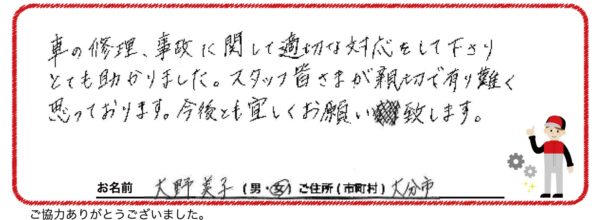 車の修理、事故に関して適切な対応をして下さり
とても助かりました。スタッフ皆さまが親切で有り難く
思っております。今後とも宜しくお願い致します。
お名前 大野美子 (男・女) ご住所(市町村) 大分市
ご協力ありがとうございました。